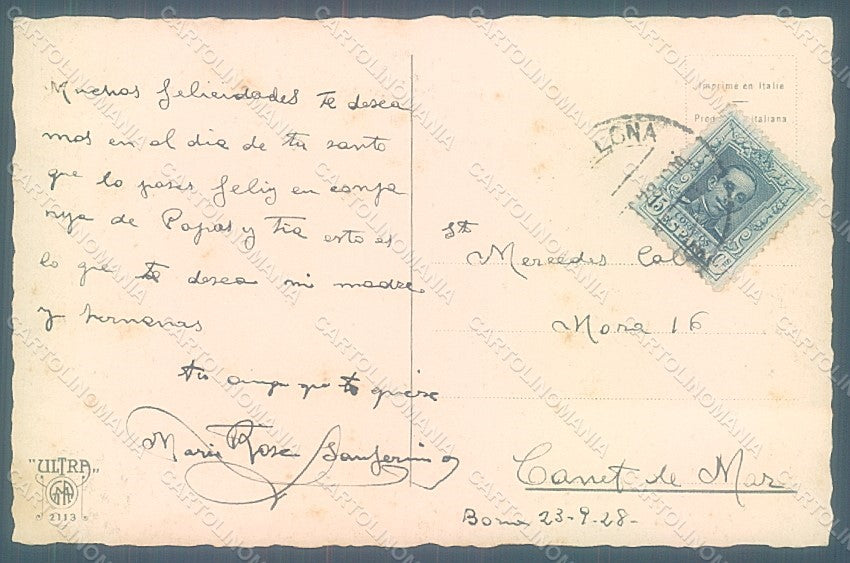 Muchas felicidades te desea
mos en el dia de tu santo
que lo pases feliz en compa
ñia de Papas y tia esto es
lo que te desea mi madre
y hermanas
tu amiga que te quiere
Maria Rosa
"ULTRA"
2113
Imprime en Italie
italiana
LONA
15
CORREOS
ESPAÑA
Sta
Mercedes
Mora 16
Canet de Mar
Bona 23-9-28-
CARTOLINOMANIA